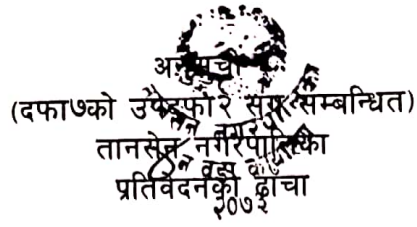 अनुसुची
(दफा७को उपदफा२ संग सम्बन्धित)
तानसेन नगरपालिका
प्रतिवेदनको ढाँचा
२०७३